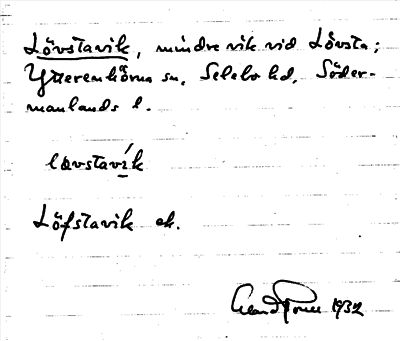 Lövstavik, mindre vik vid Lövsta;
Ytterenhörna sn, Selebo hd, Söder-
manlands l.
løvstavík
Löfstavik ek.
1932